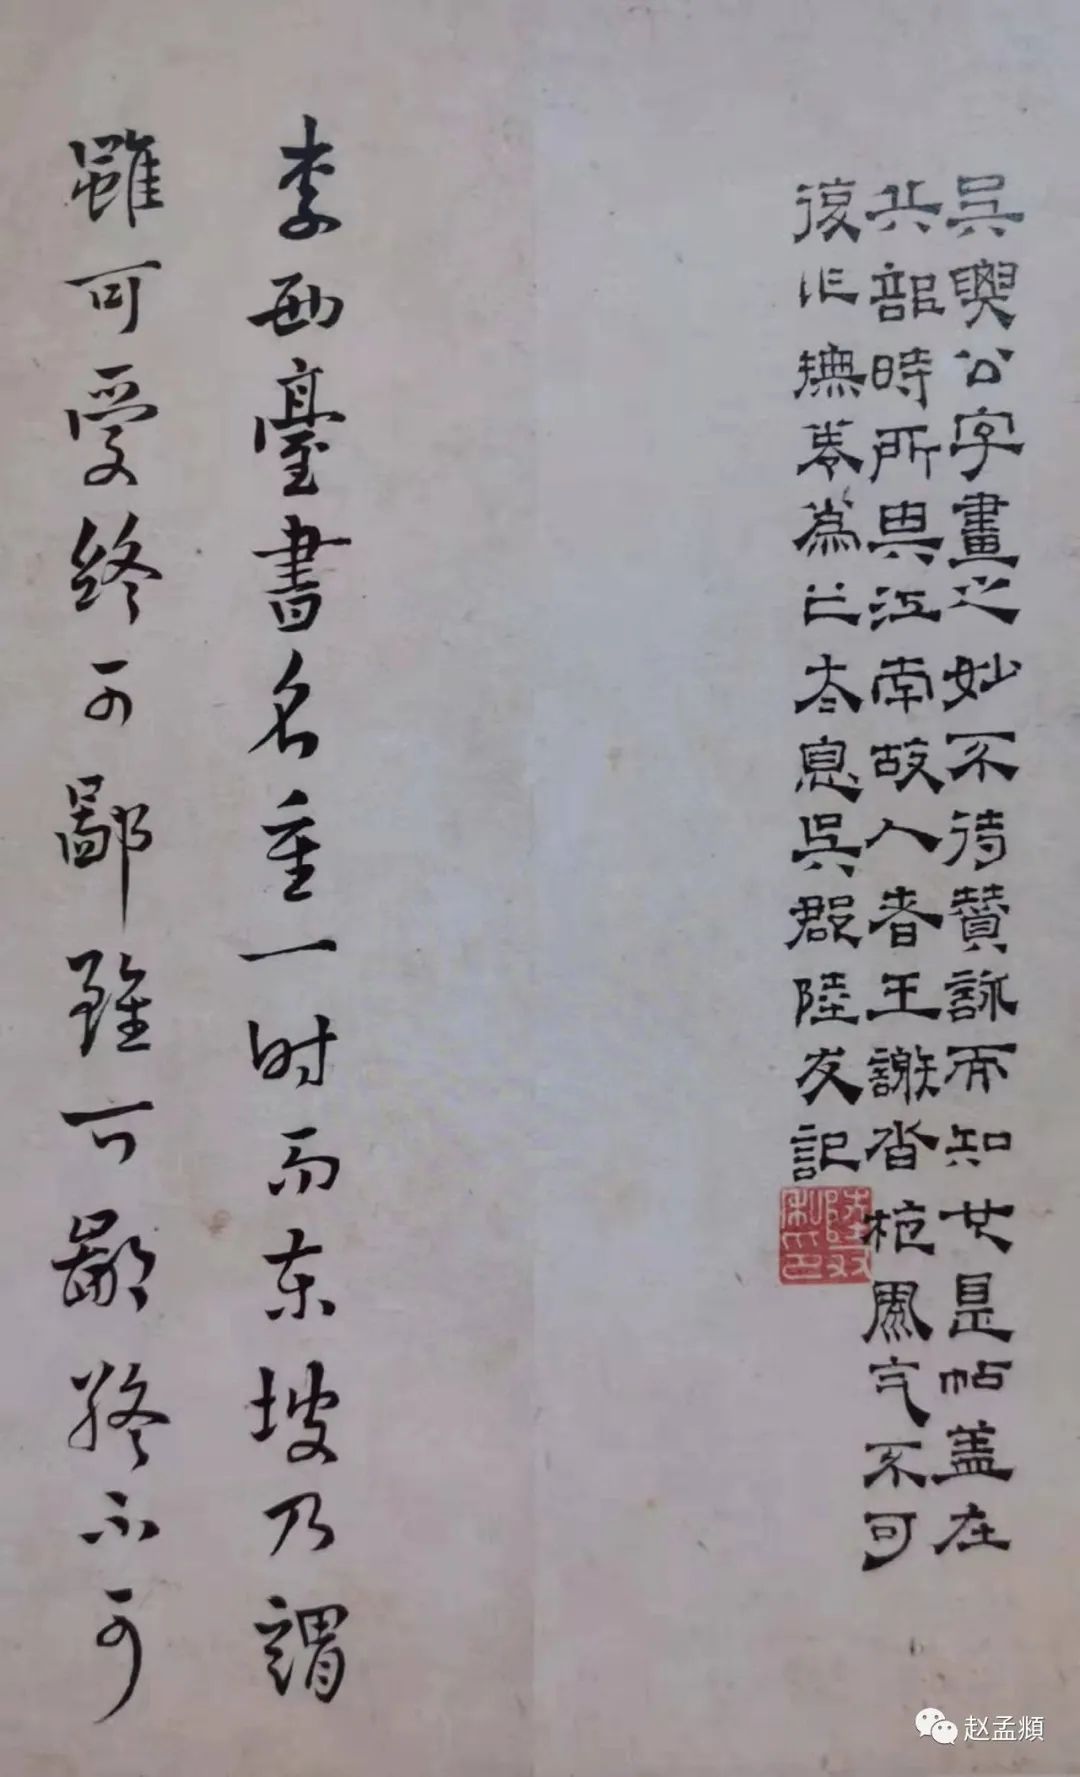 吳興公字畫之妙不待贊詠而知也是帖蓋在
兵部時所與江南故人者王謝沓柂風气不可
復作撫卷為之太息吳郡陸友記
陸友私印
李西臺書名重一时而東坡乃謂
雖可愛終可鄙雖可鄙終不可
赵孟頫